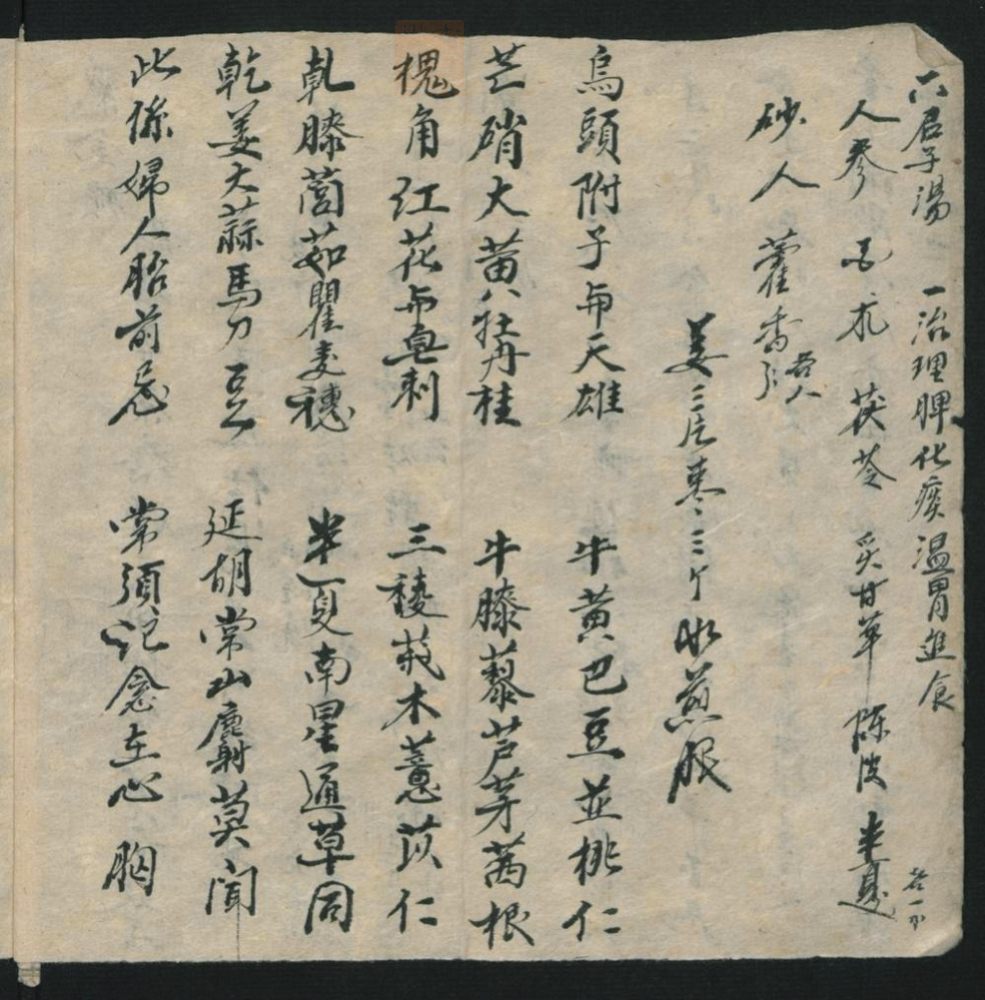 六君子湯 一治理脾化痰温胃進食
人參 白朮 茯苓 炙甘草 陈皮 半夏 各一
砂人 藿香 各
姜三片枣三个水煎服
烏頭附子与天雄 牛黄巴豆並桃仁
芒硝大黄牡丹桂 牛膝藜芦茅茜根
槐角红花与皂刺 三稜莪木薏苡仁
乾膝䓛茹瞿麦穗 半夏南星通草同
乾姜大蒜馬刀豆 延胡常山麝莫闻
此係婦人胎前忌 常須记念在心胸